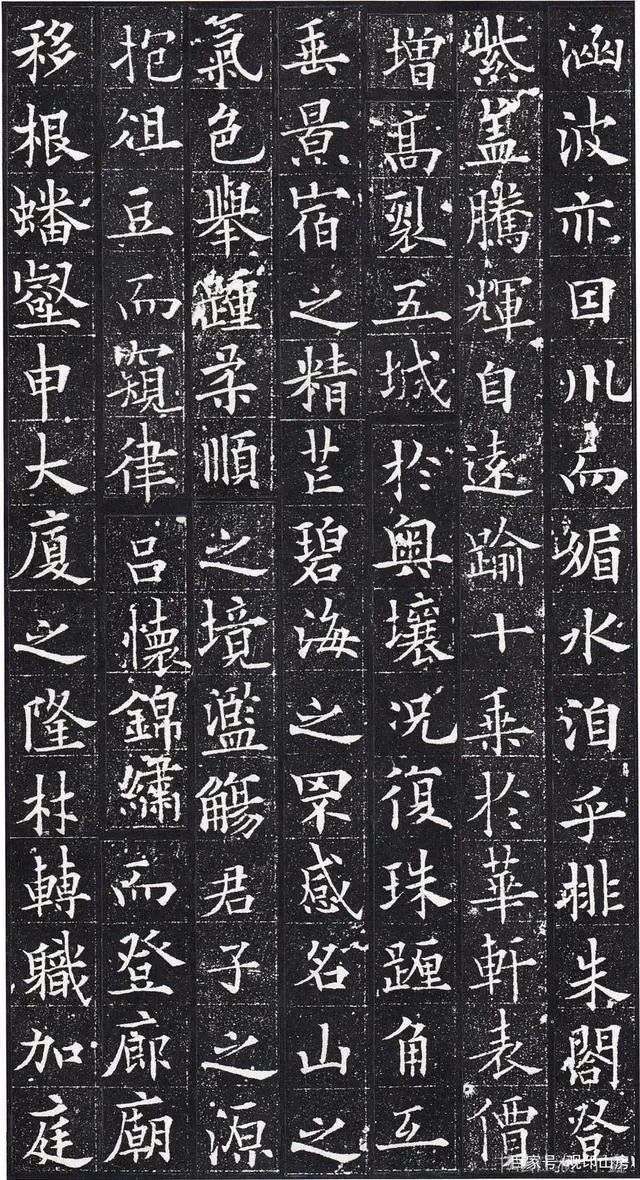 涵波亦因川而媚水洎乎排朱閣登
紫蓋騰輝自遠踰十乘於華軒表價
增高裂五城於奧壤況復珠躔角互
垂景宿之精芒碧海之罘感名山之
氣色舉踵柔順之境濫觴君子之源
抱俎豆而窺律呂懷錦繡而登廊廟
移根蟠壑申大廈之隆材轉職加庭
百家号/砚印山房